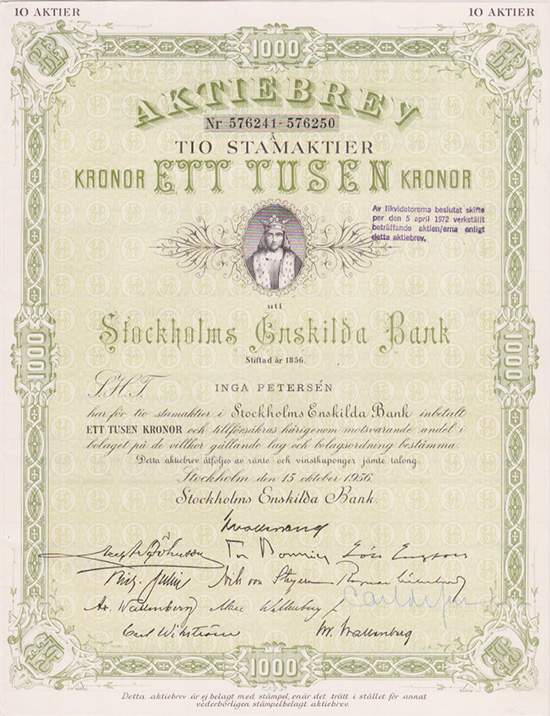 10 AKTIER 10 AKTIER
1000
AKTIEBREV
Nr 576241-576250
Å
TIO STAMAKTIER
KRONOR ETT TUSEN KRONOR
Av likvidatorerna beslutat skifte
per den 5 april 1972 verkställt
beträffande aktien/erna enligt
detta aktiebrev.
uti
Stockholms Enskilda Bank
Stiftad år 1856.
1000 1000
S.H.T. INGA PETERSÉN
har för tio stamaktier i Stockholms Enskilda Bank inbetalt
ETT TUSEN KRONOR och tillförsäkras härigenom motsvarande andel i
bolaget på de villkor gällande lag och bolagsordning bestämma.
Detta aktiebrev åtföljes av ränte- och vinstkuponger jämte talong.
Stockholm den 15 oktober 1956.
Stockholms Enskilda Bank.
J Wallenberg
Carl Wikström M. Wallenberg
1000
Detta aktiebrev är ej belagt med stämpel, enär det trätt i stället för annat
vederbörligen stämpelbelagt aktiebrev.